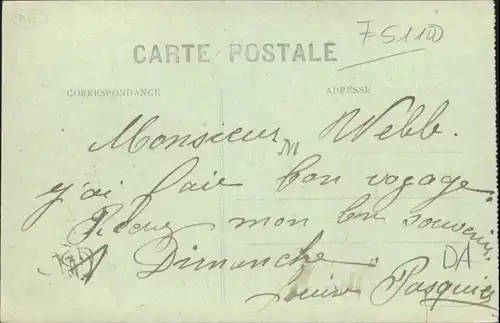 75110
CARTE POSTALE
CORRESPONDANCE
ADRESSE
Monsieur Webb.
j'ai fait bon voyage
mon bon souvenir
Dimanche
DA
Pasquier